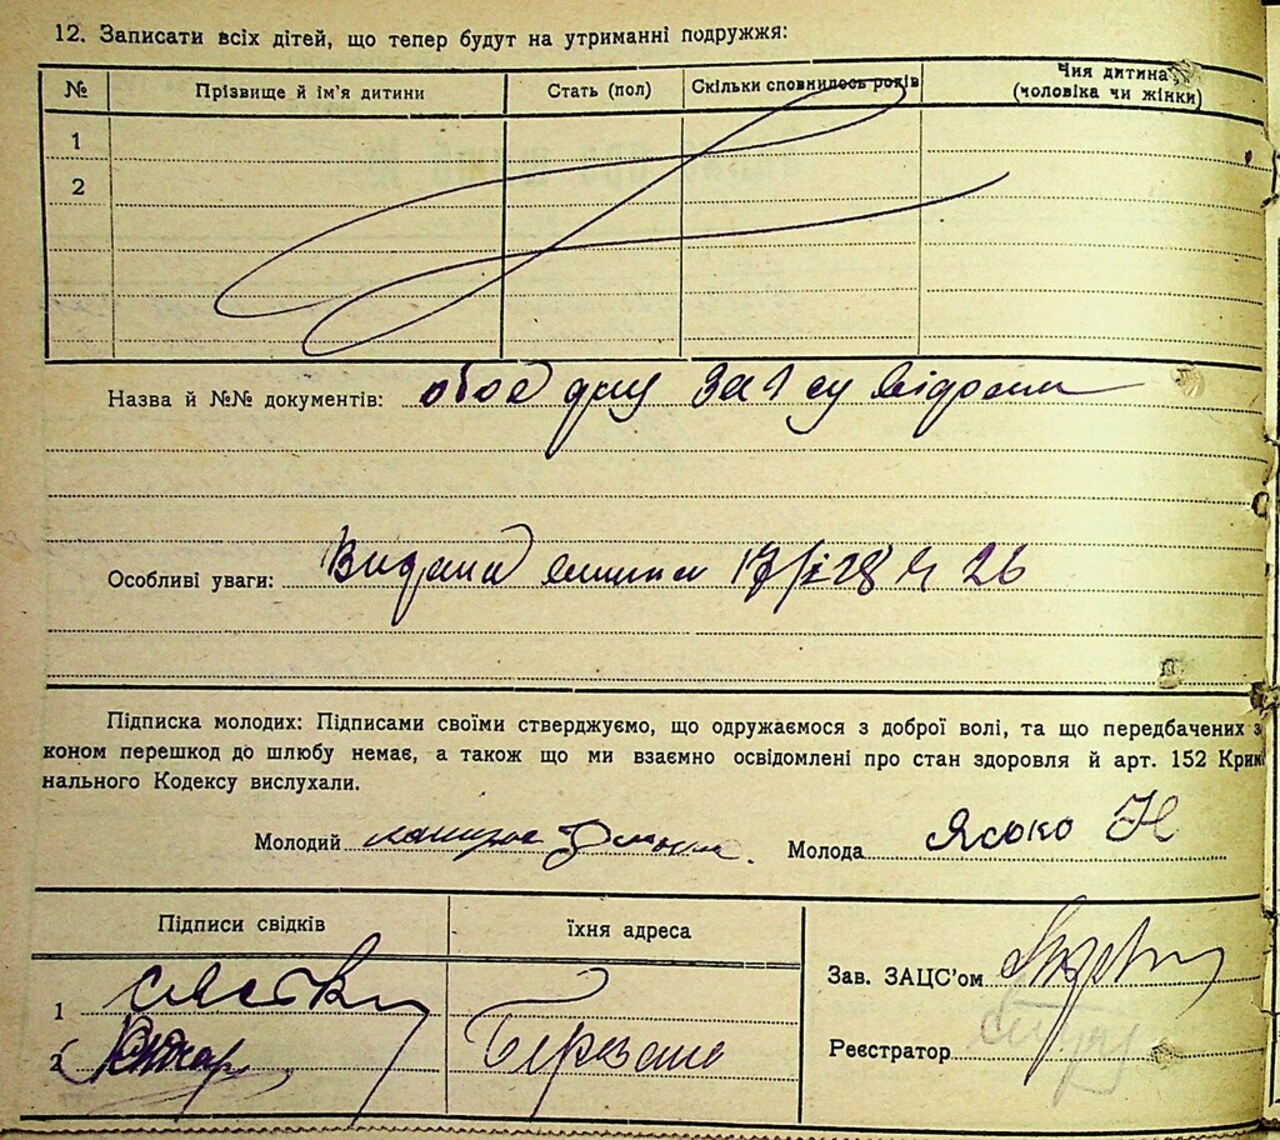 12. Записати всіх дітей, що тепер будут на утриманні подружжя:
№ Прізвище й ім'я дитини Стать (пол) Скільки сповнилось років Чия дитина (чоловіка чи жінки)
1
2
Назва й №№ документів: обоє
Особливі уваги: Видана 17/I 28 26
Підписка молодих: Підписами своїми стверджуємо, що одружаємося з доброї волі, та що передбачених з
коном перешкод до шлюбу немає, а також що ми взаємно освідомлені про стан здоровля й арт. 152 Крим
нального Кодексу вислухали.
Молодий Молода Ясько Н
Підписи свідків їхня адреса
Зав. ЗАЦС'ом
1
2 Березань
Реєстратор